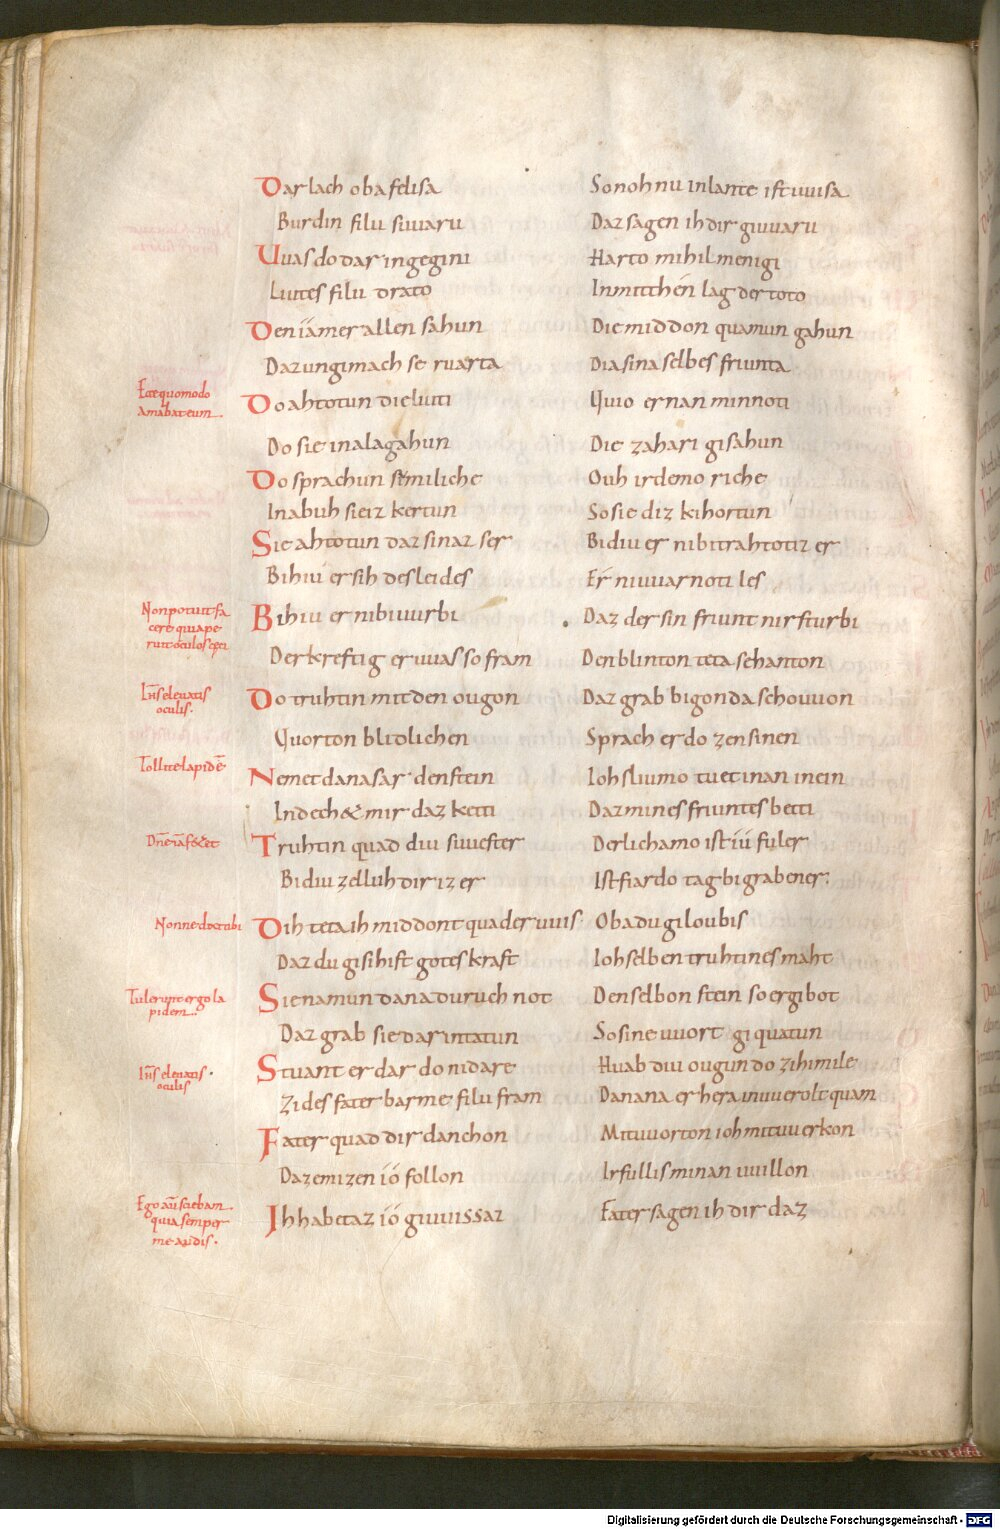 Dar lach oba felisa Sonoh nu in lante ist uuisa
Burdin filu suuaru Daz sagen ih dir giuuaru
Uuas do dar ingegini Harto mihil menigi
Liutes filu drato Inmitthen lag der toto
Den iamer allen sahun Die middon quamun gahun
Daz ungimach se ruarta Dia sina selbes friunta
Ecce quomodo
amabat eum.
Do ahtotun die liuti Uuio er nan minnoti
Do sie in ala gahun Die zahari gisahun
Do sprachun semiliche Ouh ir demo riche
In abuh sie iz kertun So sie diz kihortun
Sie ahtotun daz sinaz ser Bidiu er ni bitrahtot iz er
Bihiu er sih des leides Er ni uuarnoti les
Non potuit fa
cere qui ape
ruit oculos ceci
Bihiu er ni biuuurbi Daz der sin friunt nir sturbi
Der kreftig er uuas so fram Den blinton teta sehanton
Ihs eleuatis
oculis.
Do truhtin mit den ougon Daz grab bigonda schouuon
Quorton blidlichen Sprach er do zen sinen
Tollite lapidē
Nemet dana sar den stein Ioh sliumo tuet inan in ein
In dech& mir daz ketti Daz mines friuntes betti
Dnē iā f&et
Truhtin quad diu suuester Der lichamo ist iu fuler
Bidiu zelluh dir iz er Ist fiardo tag bigrabener.
Nonne dixi tibi
Dih teta ih middont quad er uuis Oba du giloubis
Daz du gisihist gotes kraft Ioh selben truhtines maht
Tulerunt ergo la
pidem.
Sie namun dana duruch not Den selbon stein so er gibot
Daz grab sie dar intatun So sine uuort gi quatun
Ihs eleuatis.
oculis
Stuant er dar do nidare Huab diu ougun do zi himile
Zi des fater barme filu fram Danana er hera in uuerolt quam
Fater quad dir danchon Mit uuorton ioh mit uuerkon
Daz emizen io follon Irfullis minan uuillon
Ego aū sciebam.
quia semper
me audis.
Ih habetaz io giuuissaz Fater sagen ih dir daz
Digitalisierung gefördert durch die Deutsche Forschungsgemeinschaft - DFG